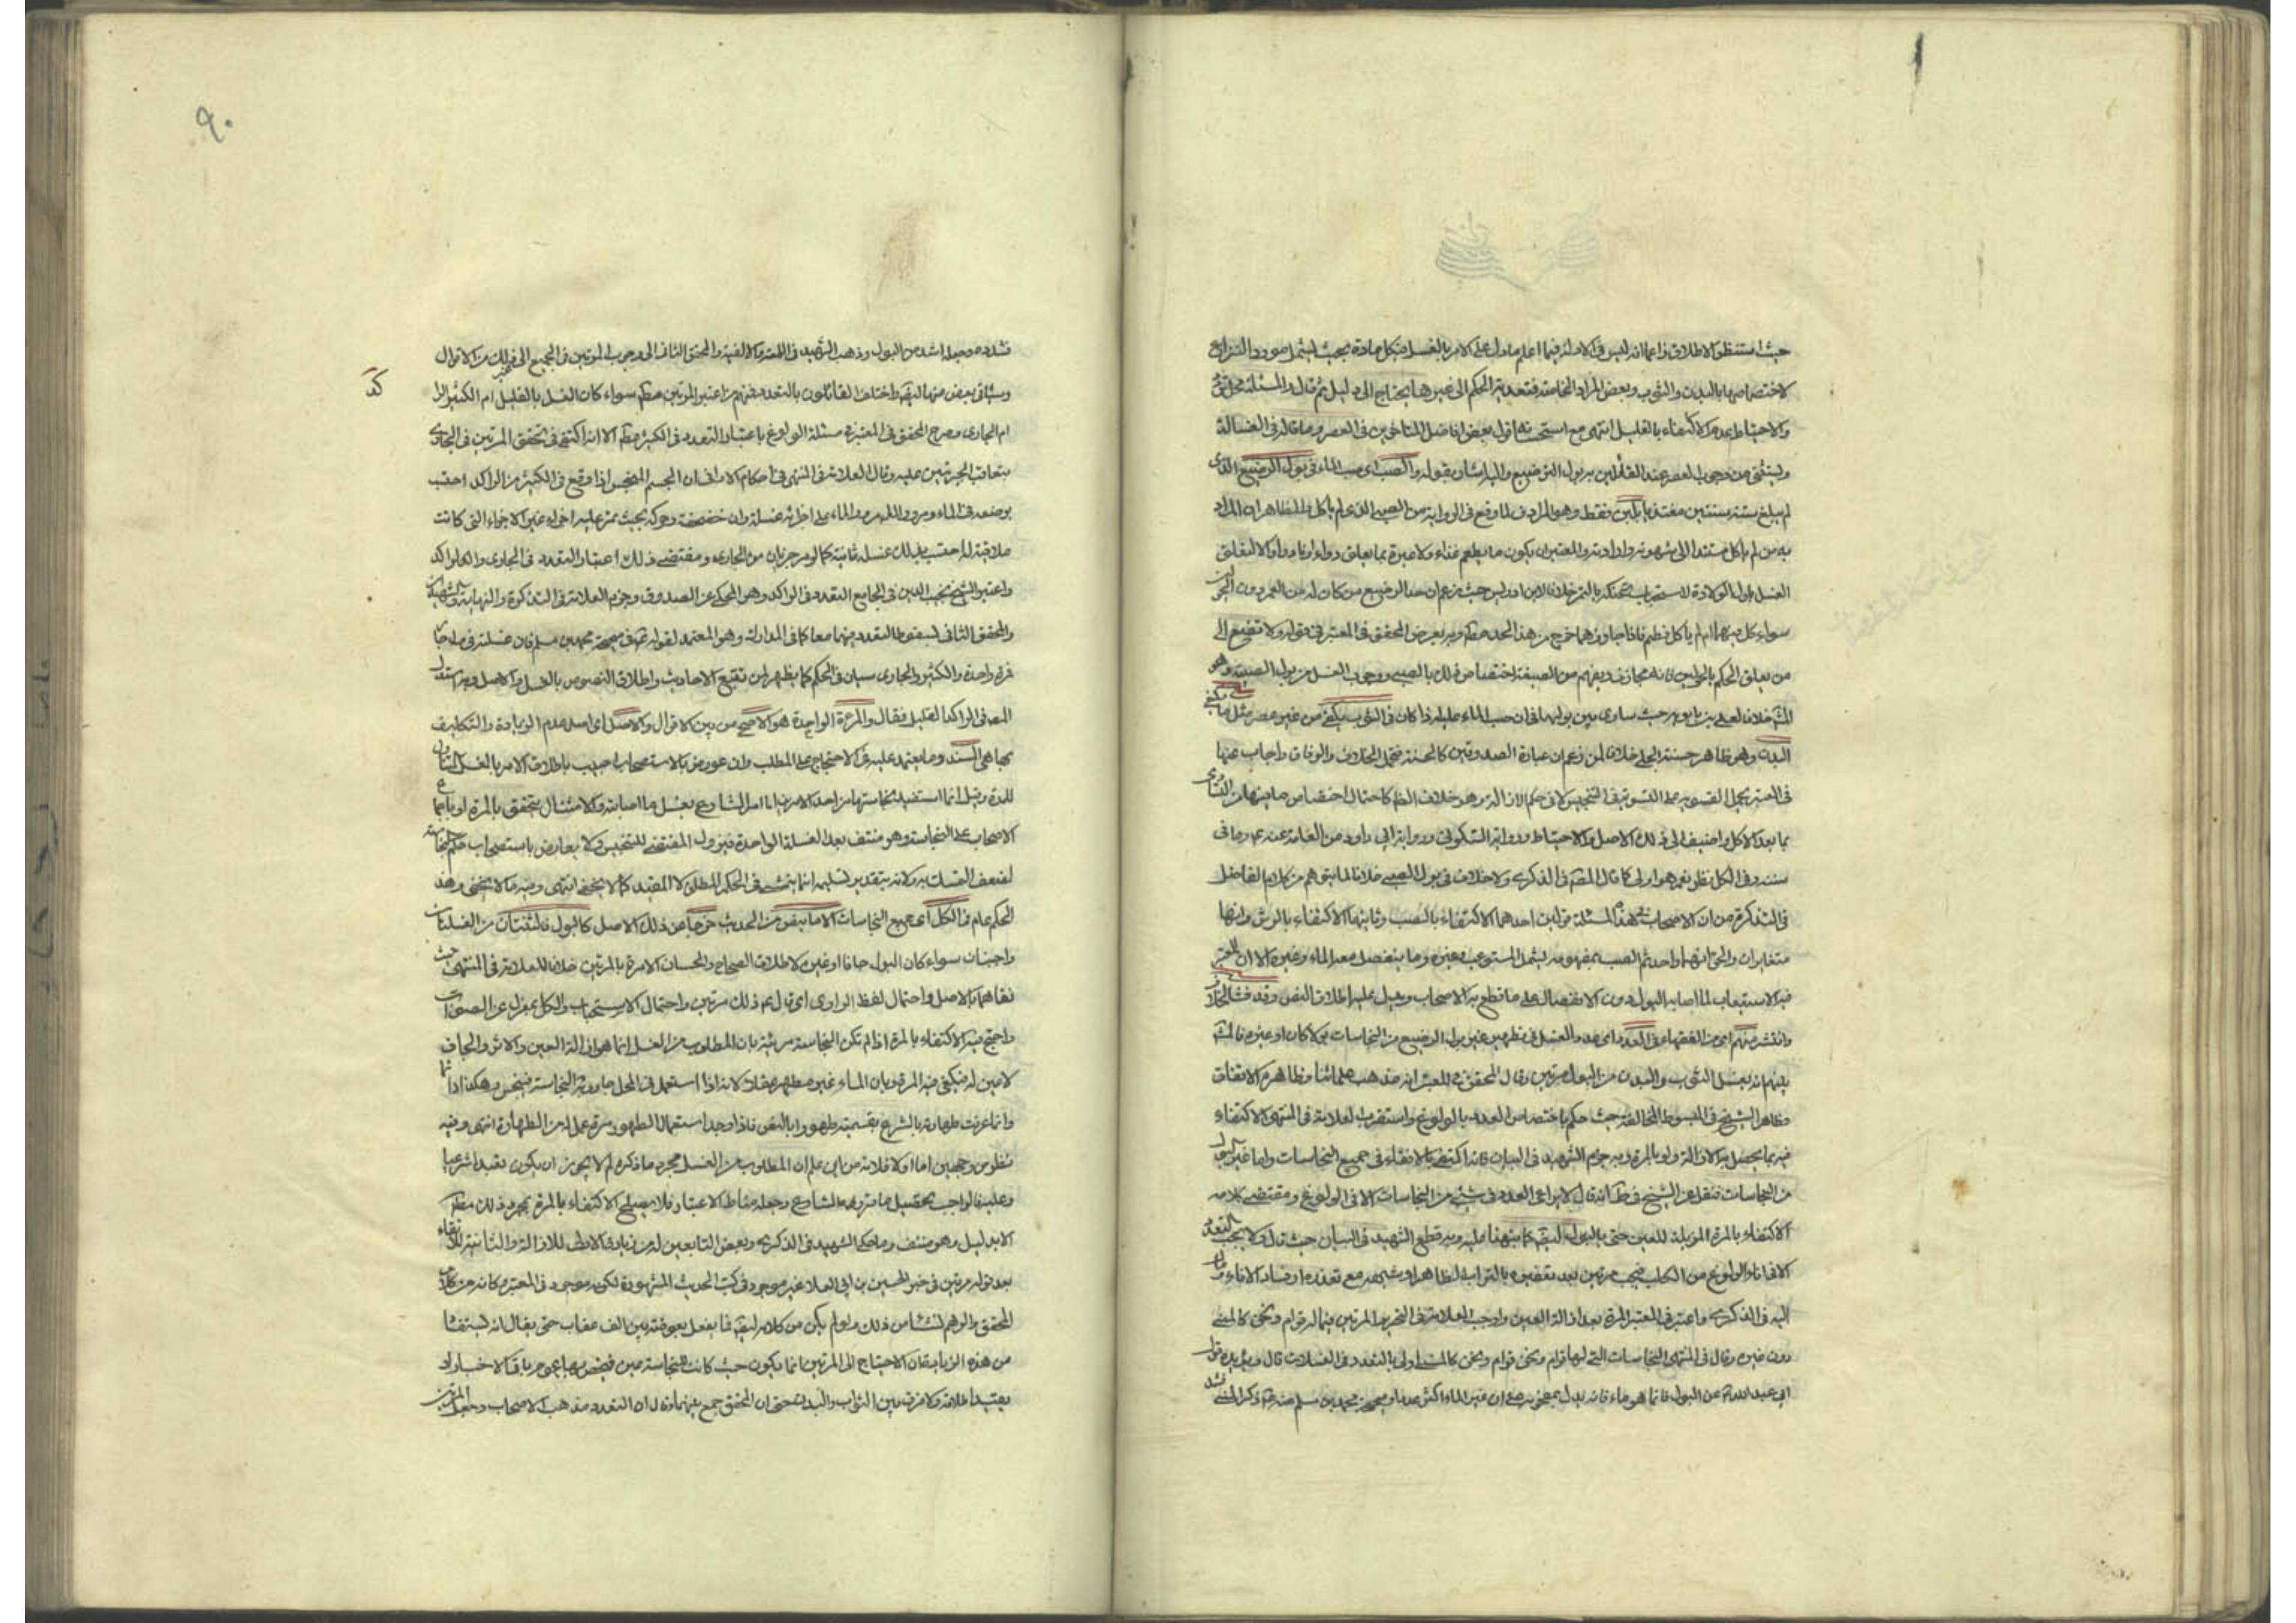 حيث استنظر الاطلاق زاعما انه ليس في الادلة فيما اعلم ما دل على الامر بالغسل بكل مادة بحيث ليشمل مورد النزاع
لاختصاصها بالبدن والثوب وبعض المواد الخاصة فتعدية الحكم الى غيرها يحتاج الى دليل ثم قال والمسئلة محل
والاحتياط عدم الاكتفاء بالقليل انتهى مع قول بعض افاضل المتاخرين في العصر وما قاله في الغسالة
وليستثنى من وجوب العصر عند القائلين به بول الرضيع واليه اشار بقوله والصب اى صب الماء في بول الرضيع الذى
لم يبلغ سنه سنتين مغتذيا بلبن فقط وهو المراد لما وقع في الرواية من الصبى الذى لم ياكل والظاهر ان المراد
به من لم ياكل مستندا الى شهوته وارادته والمعتبر ان يكون ما يطعم غذاء ولا عبرة بما يعلق دواء او نادرا والا لتعلق
الغسل باول الولادة لاستحباب تحنكه بالتمر خلافا لابن ادريس حيث زعم ان حد الرضيع من كان له من العمر دون الحولين
سواء كل منهما ام لم ياكل فطم فاذا جاوزهما خرج من هذا الحد مطلقا وبه يعرض المحقق في المعتبر في قوله ولا تصغ الى
من يعلق الحكم بالحولين فانه مجازف ويفهم من الصيغة اختصاص ذلك بالصبى ووجوب الغسل من بول الصبية وهو
خلافا لعلى بن بابويه حيث ساوى بين بوليهما في ان صب الماء عليه اذا كان في الثوب يكفى من غير عصر مثل ما يكفى
البدن وهو ظاهر حسنة الحلبى خلافا لمن زعم ان عبارة الصدوقين كالحسنة تحتمل الخلاف والوفاق واجاب عنها
في المعتبر بحمل التسوية على التسوية في التنجيس لا في حكم الازالة وهو خلاف الظاهر كاحتمال اختصاص ما بينهما من التساوى
بما بعد الاكل واضيف الى ذلك الاصل والاحتياط ورواية السكونى ورواية ابى داود من العامة عنه وما في
سنده وفي الكل نظر نعم هو اولى كما قال في الذكرى ولا خلاف في بول الصبى خلافا لما يتوهم من كلام الفاضل
في التذكرة من ان الاصحاب في هذه المسئلة قولين احدهما الاكتفاء بالصب وثانيهما الاكتفاء بالرش وانها
متغايران والحق انهما واحد ثم الصب بمفهومه يشمل المستوعب وغيره وما ينفصل معه الماء وغيره الا ان المعتبر
فيه الاستيعاب لما اصابه البول دون الانفصال على ما قطع به الاصحاب ويدل عليه اطلاق النص وقد فشا الخلاف
وانتشر بينهم اى من الفقهاء في العدد اى عدد الغسل في تطهير غير بول الرضيع من النجاسات بولا كان او غيره فالمشهور
بينهم انه يغسل الثوب والبدن من البول مرتين وقال المحقق في المعتبر انه مذهب علمائنا وظاهره الاتفاق
وظاهر الشيخ في المبسوط المخالفة حيث حكم باختصاص العدد بالولوغ واستقرب العلامة في المنتهى الاكتفاء
فيه بما يحصل به الازالة ولو بالمرة وبه جزم الشهيد في البيان فانه اكتفى بالانقاء في جميع النجاسات واما غير البول
من النجاسات فنقل عن الشيخ في ط انه قال لا يراعى العدد في شيء من النجاسات الا في الولوغ ومقتضى كلامه
الاكتفاء بالمرة المزيلة للعين حتى بالبول ايضا كما نبهنا عليه وبه قطع الشهيد في البيان حيث قال ولا يجب التعدد
الا في اناء الولوغ من الكلب فيجب مرتين بعد تعفيره بالتراب الطاهر او شبهه مع تعذره او فساد الاناء ومال
اليه في الذكرى واعتبر في المعتبر المرة بعد ازالة العين واوجب العلامة في التحرير المرتين فيما له قوام وثخن كالمنى
دون غيره وقال في المنتهى النجاسات التي لها قوام وثخن كالمنى اولى بالتعدد في الغسلات قال ويؤيده قول
ابى عبد الله عن البول فانما هو ماء فانه يدل بمفهومه على ان غير الماء اكثر عددا وصحيحة محمد بن مسلم عنه ذكر المنى
فشدده وجعله اشد من البول وذهب الشهيد في اللمعة والالفية والمحقق الثانى الى وجوب المرتين في الجميع الى غير ذلك من الاقوال
وسياتى بعض منها ايضا واختلف القائلون بالتعدد فمنهم من اعتبر المرتين مطلقا سواء كان الغسل بالقليل ام الكثير الراكد
ام الجارى وصرح المحقق في المعتبر في مسئلة الولوغ باعتبار التعدد في الكثير مطلقا الا انه اكتفى في تحقق المرتين في الجارى
بتعاقب الجريتين عليه وقال العلامة في المنتهى في احكام الاوانى ان الجسم النجس اذا وقع في الكثير من الراكد احتسب
بوضعه في الماء ومرور الماء على اجزائه غسلة وان خضخضه وحركه بحيث تمر عليه اجزاء غير الاجزاء التى كانت
ملاقية له احتسب بذلك غسلة ثانية كما لو مر جريان من الجارى ومقتضى ذلك اعتبار التعدد في الجارى والراكد
واعتبر الشيخ نجيب الدين في الجامع التعدد في الراكد وهو المحكى عن الصدوق وجزم العلامة في التذكرة والنهاية والشهيدان
والمحقق الثانى بسقوط التعدد فيهما معا كما في المدارك وهو المعتمد لقوله في صحيحة محمد بن مسلم فان غسلته في ماء جار
فمرة واحدة والكثير والجارى سيان في الحكم كما يظهر من تتبع الاحاديث واطلاق النصوص بالغسل والاصل وبه استدل
المص في الراكد القليل فقال والمرة الواحدة هو الاصح من بين الاقوال والاصل اى اصل عدم الزيادة والتكليف
بها هى السند وما يعتمد عليه في الاحتجاج على المطلب وان عورض بالاستصحاب اجيب باطلاق الامر بالغسل
للمرة وقيل انما استفيد نجاستها من احد الامرين اما امر الشارع بغسل ما اصابته والامتثال يتحقق بالمرة او باجماع
الاصحاب على النجاسة وهو منتف بعد الغسلة الواحدة فيزول المقتضى للتنجيس ولا يعارض باستصحاب حكم النجاسة
لضعف التمسك به ولانه بتقدير تسليمه انما يتمشى في الحكم المطلق لا المقيد كما لا يخفى انتهى وفيه ما لا يخفى وهذا
الحكم عام في الكل اى جميع النجاسات الا ما بنص من الحديث خرجا عن ذلك الاصل كالبول فالثنتان من الغسلتان
واجبتان سواء كان البول جافا او غيره لاطلاق الصحاح والحسان الامرة بالمرتين خلافا للعلامة في المنتهى حيث
نفاهما بالاصل واحتمال لفظ الراوى اى قال ثم ذلك مرتين واحتمال الاستحباب والكل بمعزل عن الصواب
واحتج فيه الاكتفاء بالمرة اذا لم تكن النجاسة مرئية بان المطلوب من الغسل انما هو ازالة العين والاثر والجاف
لا عين له فيكفى فيه المرة وبان الماء غير مطهر عقلا لانه اذا استعمل في المحل جاورته النجاسة فينجس وهكذا دائما
وانما عرفت طهارته بالشرع بتسميته طهورا بالنص فاذا وجد استعمال الطهور مرة عمل عمله من الطهارة انتهى وفيه
نظر من وجهين اما اولا فلانه من اين علم ان المطلوب من الغسل مجرد ما ذكره لم لا يجوز ان يكون تعبدا شرعيا
وعليه فالواجب تحصيل ما قرره الشارع وجعله مناط الاعتبار فلا يصلح الاكتفاء بالمرة بمجرد ذلك مطلقا
الا بدليل وهو منتف وما حكاه الشهيد في الذكرى وبعض التابعين له من زيادة الاولى للازالة والثانية للانقاء
بعد قوله مرتين في خبر الحسين بن ابى العلا غير موجود في كتب الحديث المشهورة لكنه موجود في المعتبر وكانه من كلام
المحقق والوهم نشأ من ذلك ولو لم يكن من كلامه ايضا فما يفعل بعوضة بين الف عقاب حتى يقال انه ليستفاد
من هذه الزيادة ان الاحتياج الى المرتين انما يكون حيث كانت للنجاسة عين فيخص بها عموم باقى الاخبار او
يقيد اطلاقه ولا فرق بين الثوب والبدن حتى ان المحقق جمع بينهما وقال ان التعدد مذهب الاصحاب وجعل المرتين
٩٠